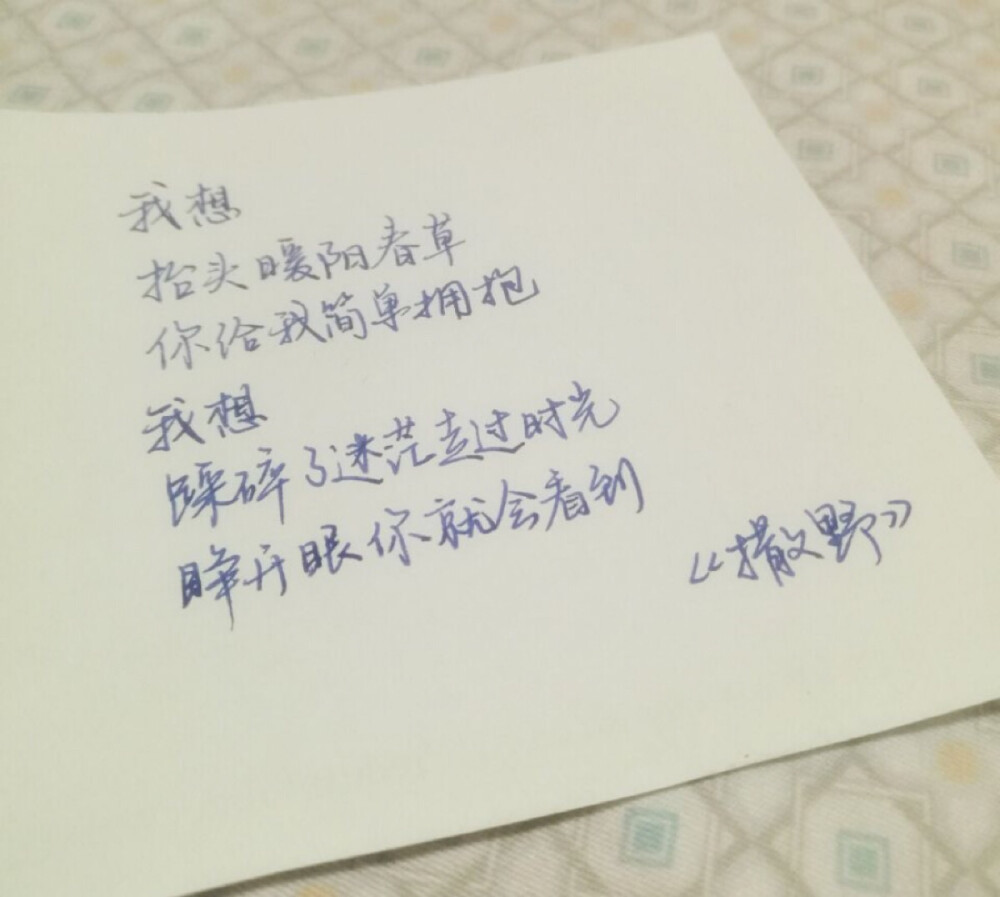 我想
抬头暖阳春草
你给我简单拥抱
我想
踩碎了迷茫走过时光
睁开眼你就会看到
《撒野》